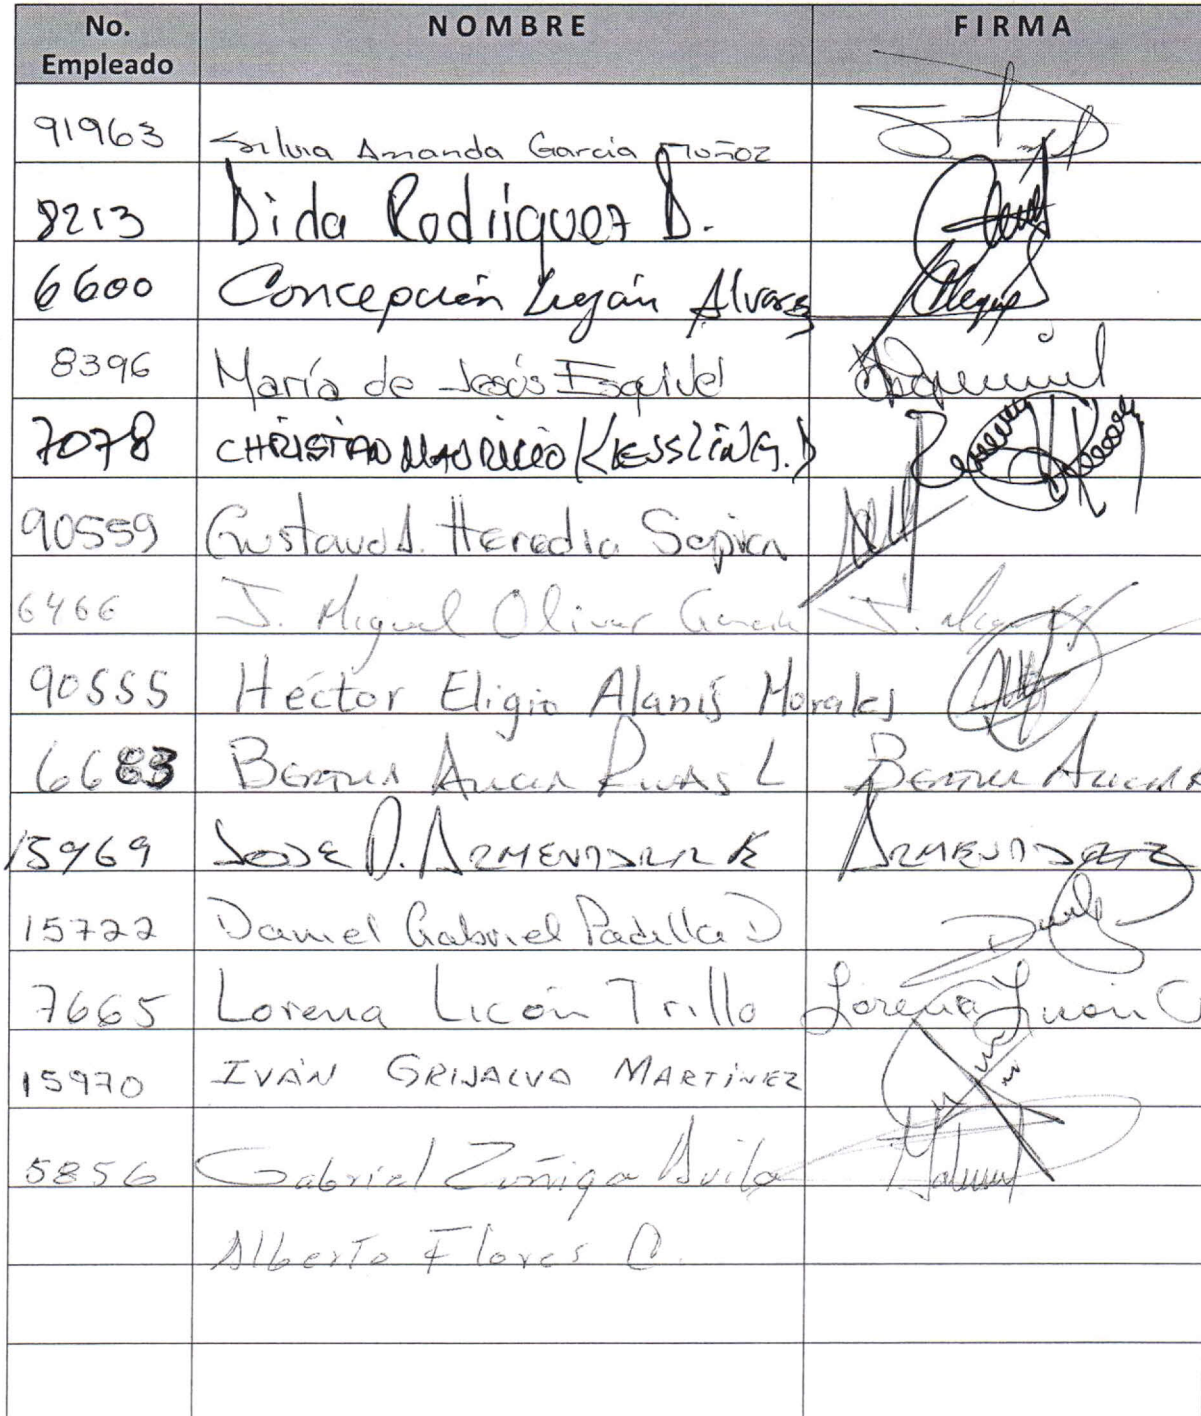 No. Empleado NOMBRE FIRMA
91963 Silvia Amanda García Muñoz
8213 Dida Rodríguez D.
6600 Concepción Luján Alvarez
8396 María de Jesús Esquivel Esquivel
7078 CHRISTIAN MAURICIO KIESSLING.
90559 Gustavo A. Heredia Sapien
6466 J. Miguel Olivar García J. Miguel
90555 Héctor Eligio Alanís Morales
6683 BERTHA ALICIA RIVAS L BERTHA ALICIA R
15969 JOSE D. ARMENDARIZ ARMENDARIZ
15722 Daniel Gabriel Padilla D
7665 Lorena Licón Trillo Lorena Licón
15970 IVÁN GRIJALVA MARTÍNEZ
5856 Gabriel Zúñiga Avila
Alberto Flores C.